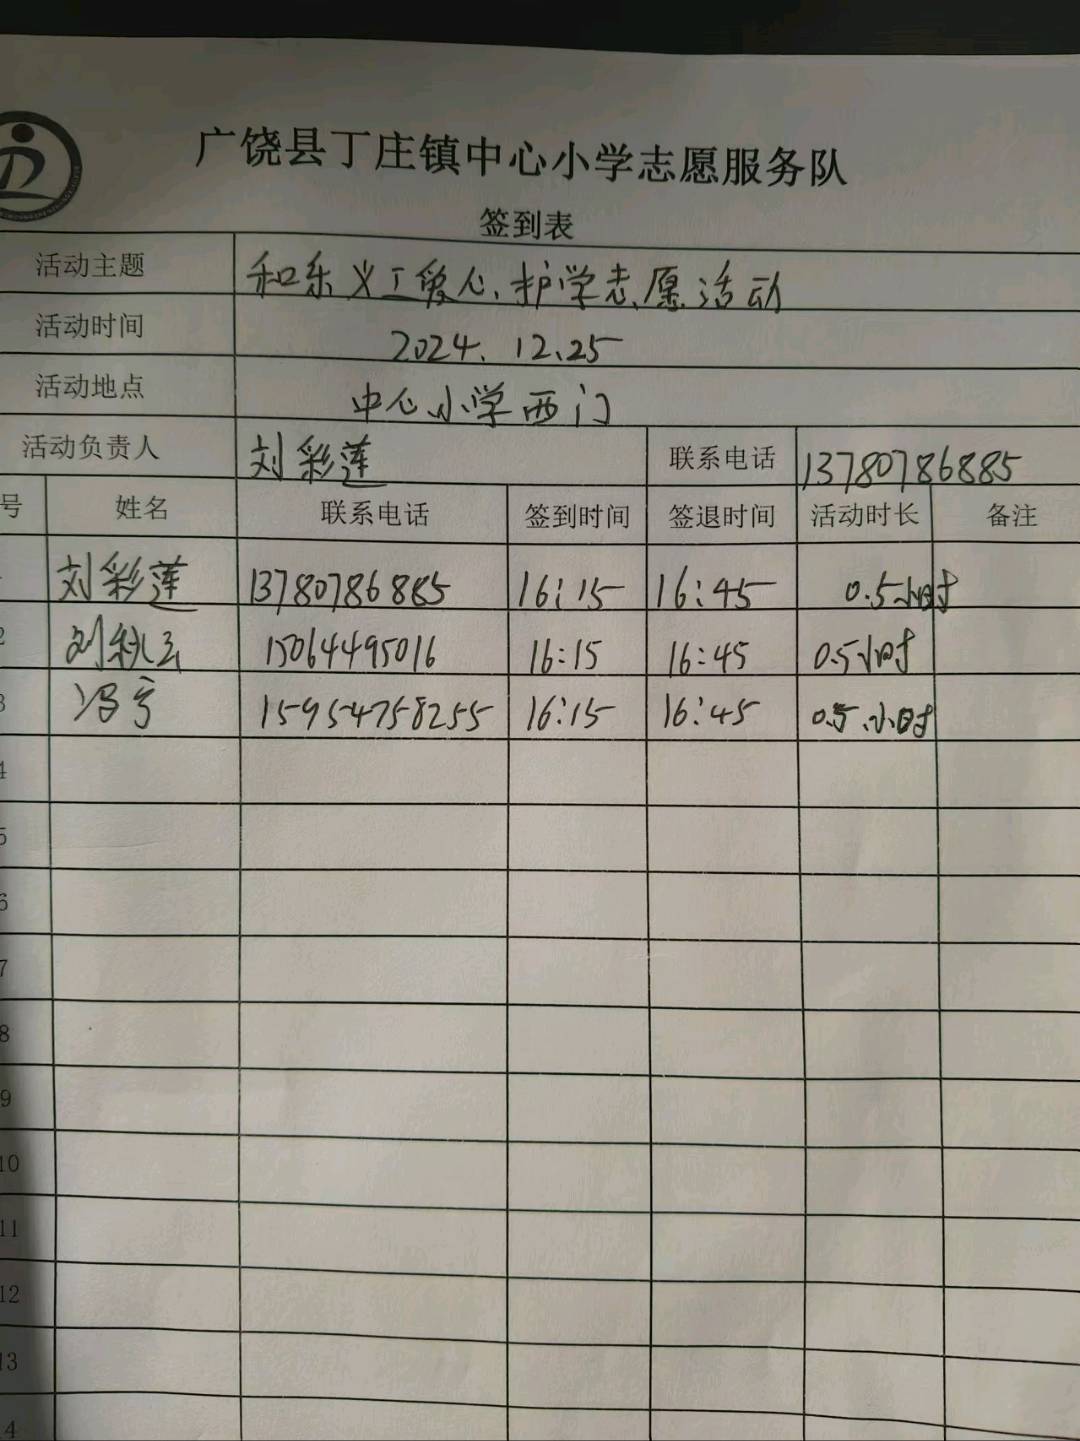 广饶县丁庄镇中心小学志愿服务队
签到表
活动主题 和乐义工爱心护学志愿活动
活动时间 2024.12.25
活动地点 中心小学西门
活动负责人 刘彩莲 联系电话 13780786885
号 姓名 联系电话 签到时间 签退时间 活动时长 备注
刘彩莲 13780786885 16:15 16:45 0.5小时
2 刘秋云 15064495016 16:15 16:45 0.5小时
3 冯亨 15954758255 16:15 16:45 0.5小时
4
5
6
7
8
9
10
11
12
13
4